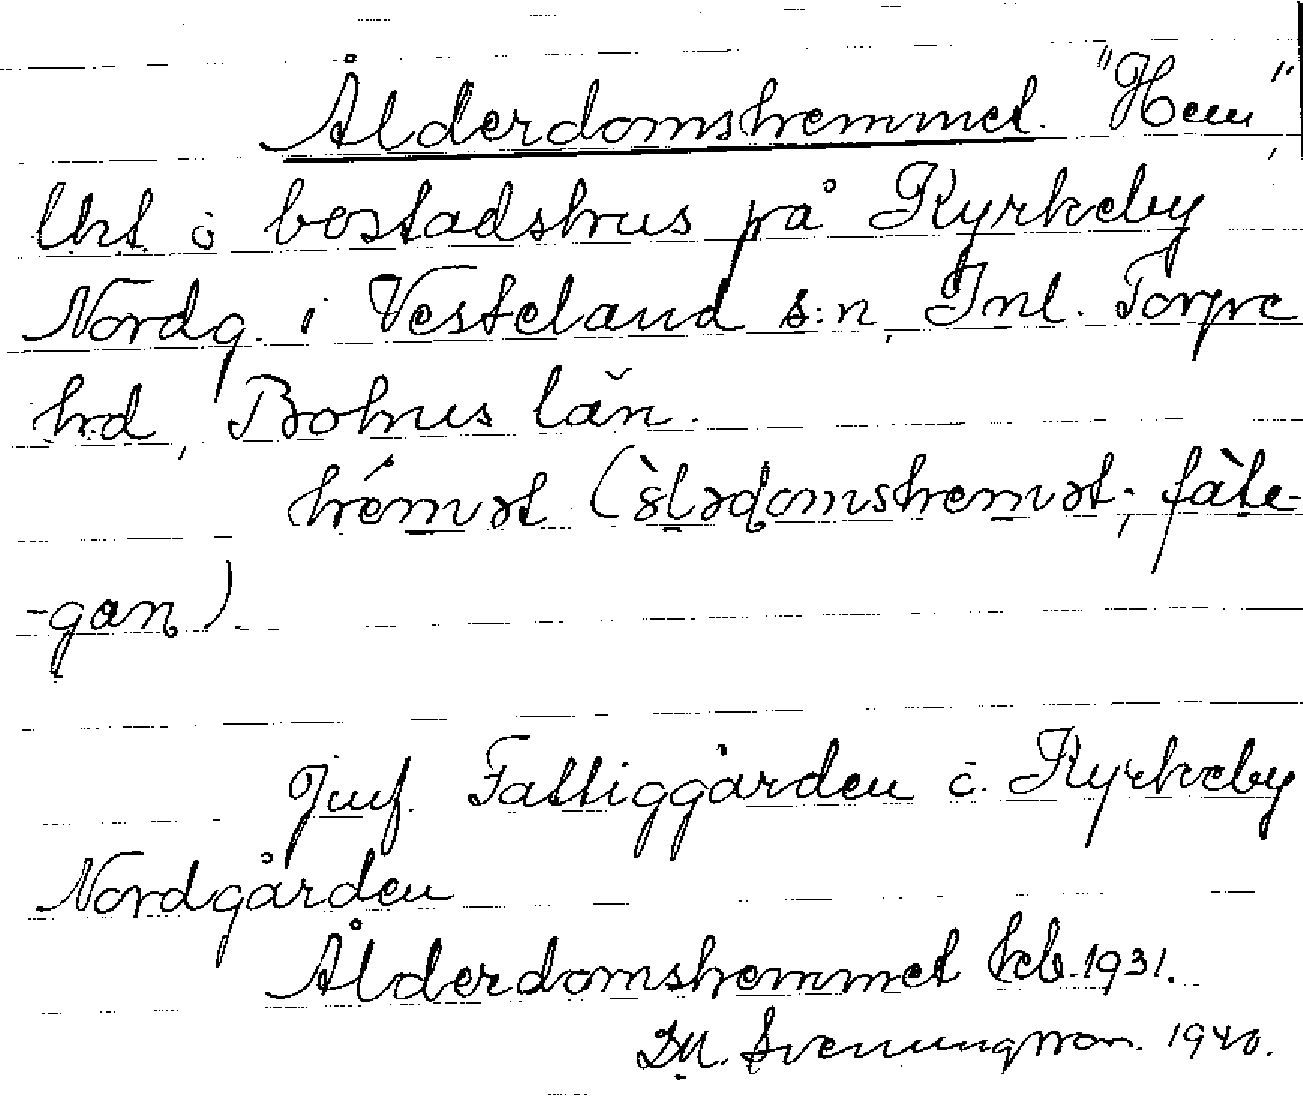 Ålderdomshemmet. "Hem",
lht o bostadshus på Kyrkeby
Nordg. i Vesteland s:n, Inl. Torpe
hd, Bohus län.
hémət (ə̀lədomshemət; fàte-
-gan).
Jmf. Fattiggården å. Kyrkeby
Nordgården
Ålderdomshemmet kb. 1931.
Svenungsson. 1940.